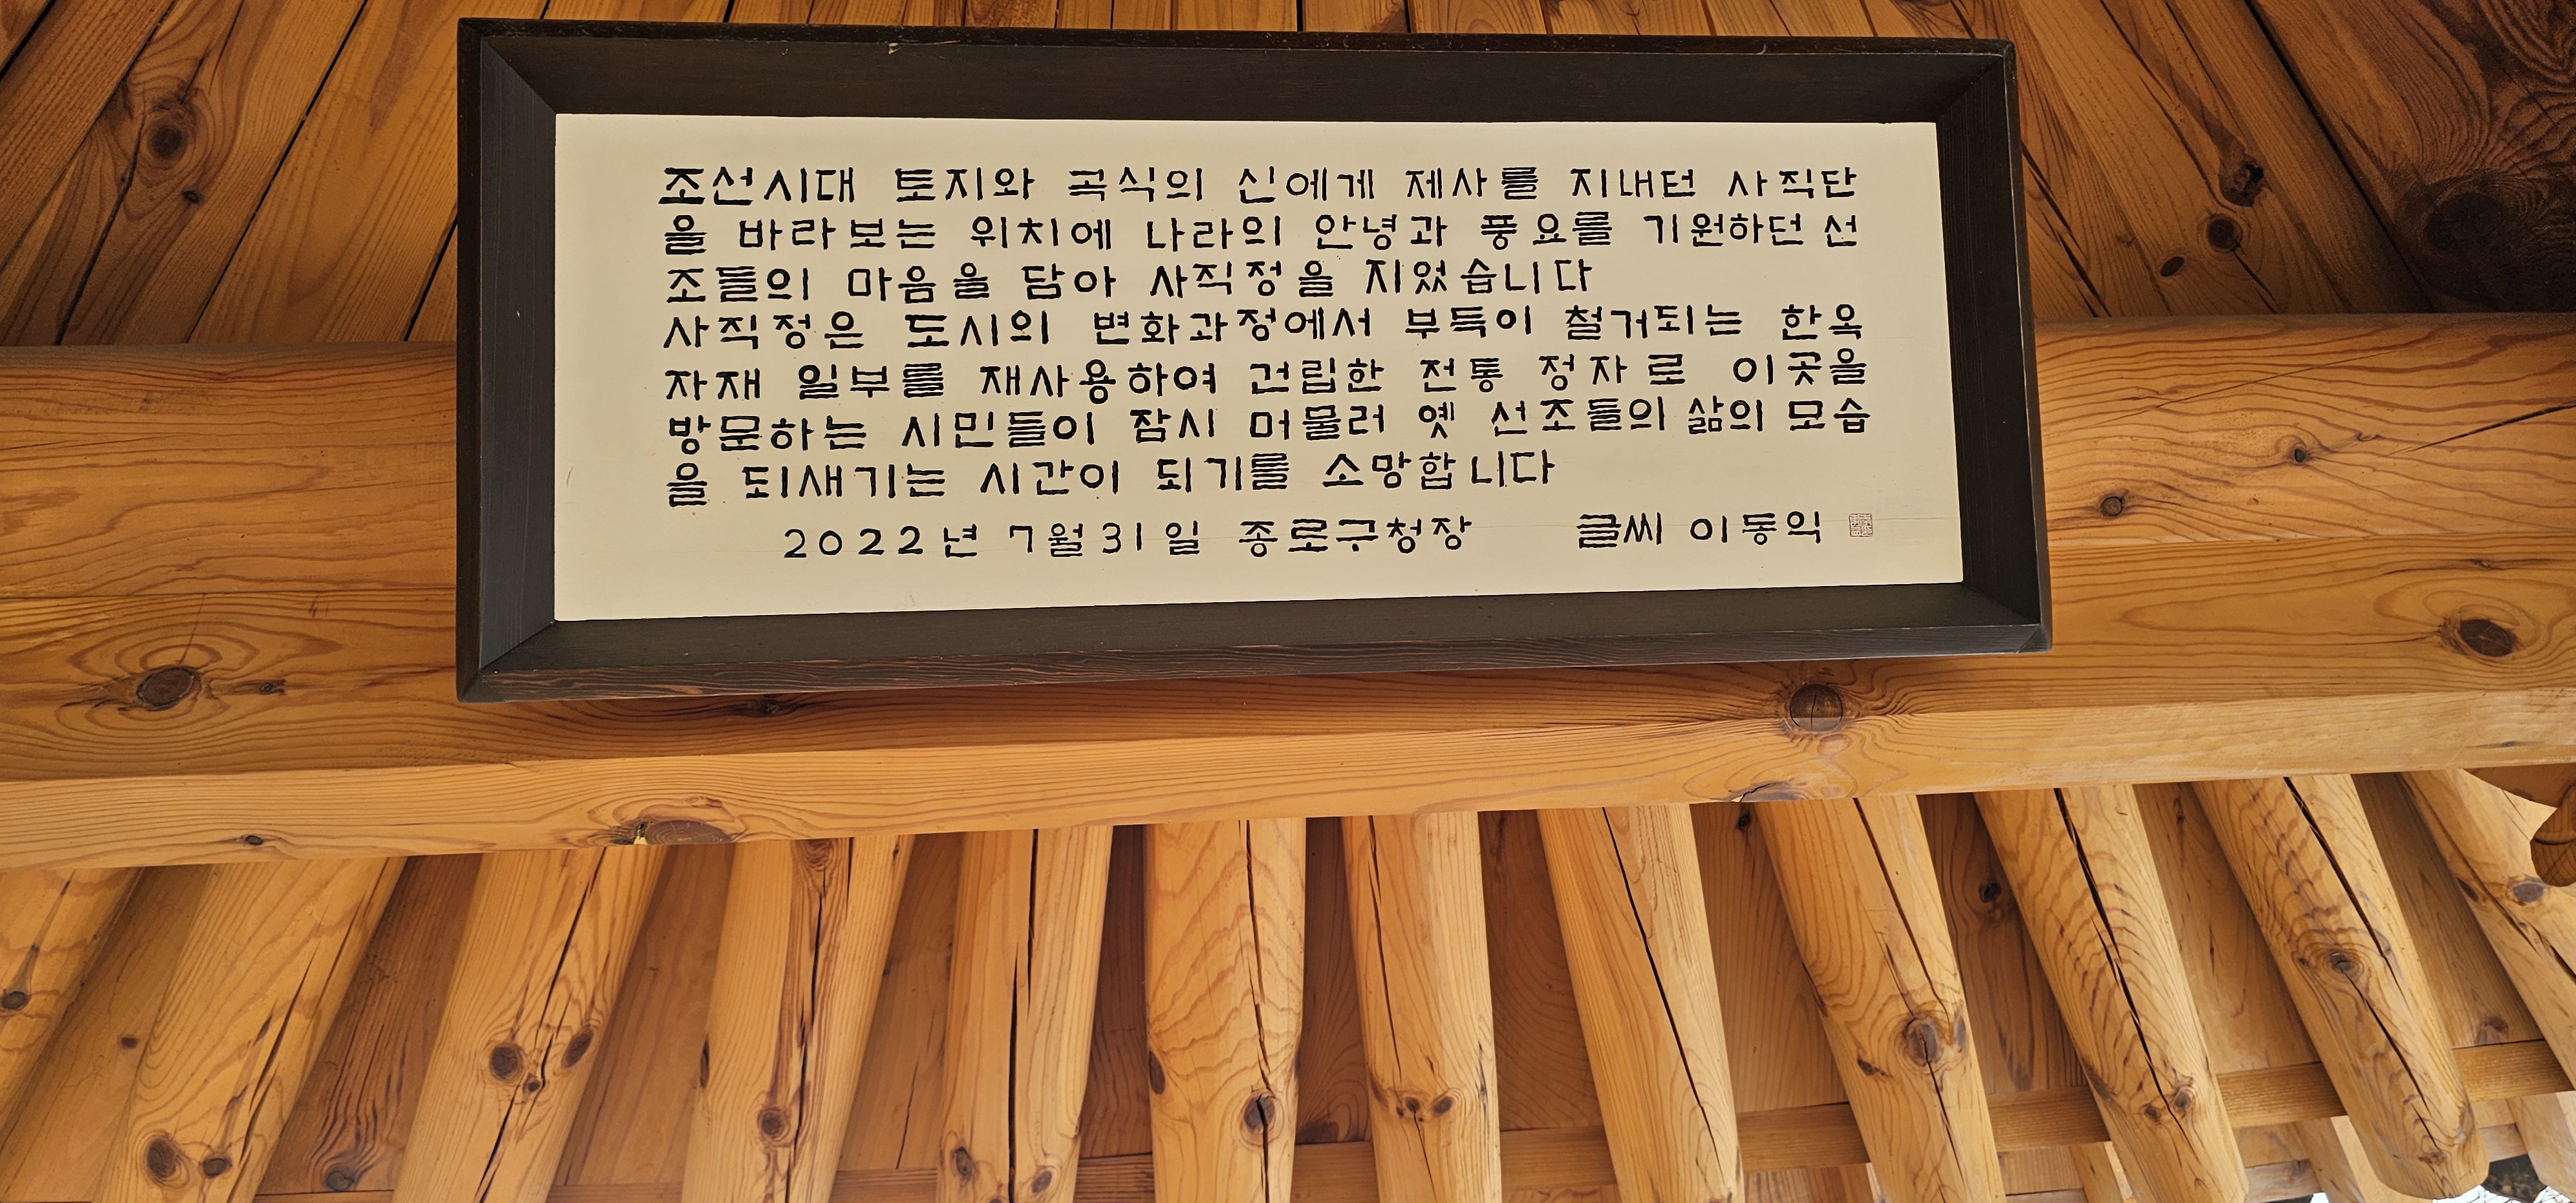 조선시대 토지와 곡식의 신에게 제사를 지내던 사직단
을 바라보는 위치에 나라의 안녕과 풍요를 기원하던 선
조들의 마음을 담아 사직정을 지었습니다
사직정은 도시의 변화과정에서 부득이 철거되는 한옥
자재 일부를 재사용하여 건립한 전통 정자로 이곳을
방문하는 시민들이 잠시 머물러 옛 선조들의 삶의 모습
을 되새기는 시간이 되기를 소망합니다
2022년 7월31일 종로구청장 글씨 이동익